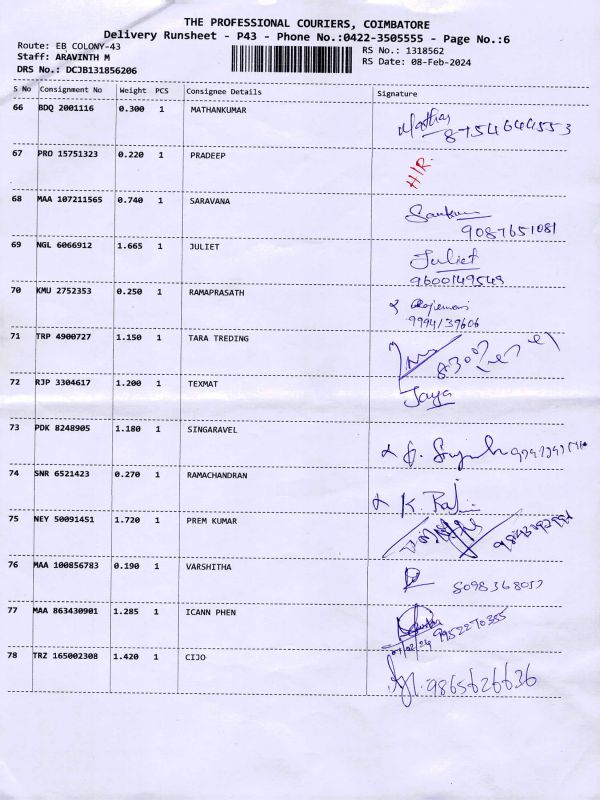 THE PROFESSIONAL COURIERS, COIMBATORE
Delivery Runsheet - P43 - Phone No.:0422-3505555 - Page No.:6
Route: EB COLONY-43
Staff: ARAVINTH M
DRS No.: DCJB131856206
RS No.: 1318562
RS Date: 08-Feb-2024
S No Consignment No Weight PCS Consignee Details Signature
66 BDQ 2001116 0.300 1 MATHANKUMAR
8754644553
67 PRO 15751323 0.220 1 PRADEEP
68 MAA 107211565 0.740 1 SARAVANA
9087651081
69 NGL 6066912 1.665 1 JULIET Juliet
9600149549
70 KMU 2752353 0.250 1 RAMAPRASATH
9994139606
71 TRP 4900727 1.150 1 TARA TREDING
72 RJP 3304617 1.200 1 TEXMAT Jaya
73 PDK 8248905 1.180 1 SINGARAVEL
74 SNR 6521423 0.270 1 RAMACHANDRAN
75 NEY 50091451 1.720 1 PREM KUMAR
76 MAA 100856783 0.190 1 VARSHITHA
77 MAA 863430901 1.285 1 ICANN PHEN
9952270355
78 TRZ 165002308 1.420 1 CIJO
9865626636